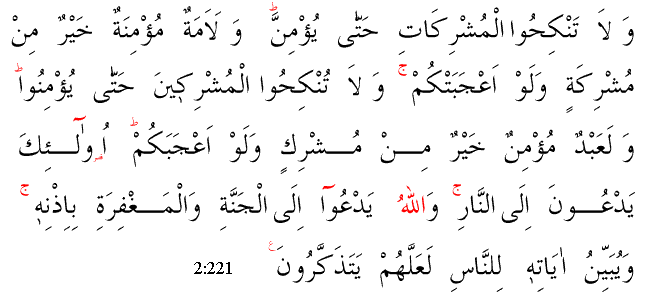 وَ لَا تَنْكِحُوا الْمُشْرِكَاتِ حَتّٰى يُؤْمِنَّؕ وَ لَاَمَةٌ مُؤْمِنَةٌ خَيْرٌ مِنْ
مُشْرِكَةٍ وَلَوْ اَعْجَبَتْكُمْۚ وَ لَا تُنْكِحُوا الْمُشْرِكٖينَ حَتّٰى يُؤْمِنُواؕ
وَ لَعَبْدٌ مُؤْمِنٌ خَيْرٌ مِـــنْ مُـــشْرِكٍ وَلَوْ اَعْجَبَكُمْؕ اُ۬ولٰٓـــئِكَ
يَدْعُـــونَ اِلَى النَّارِۚ وَاللّٰهُ يَدْعُوٓا اِلَى الْجَنَّةِ وَالْمَـــغْفِرَةِ بِاِذْنِهٖۚ
وَيُبَيِّنُ اٰيَاتِهٖ لِلنَّاسِ لَعَلَّهُمْ يَتَذَكَّرُونَࣖ 2:221